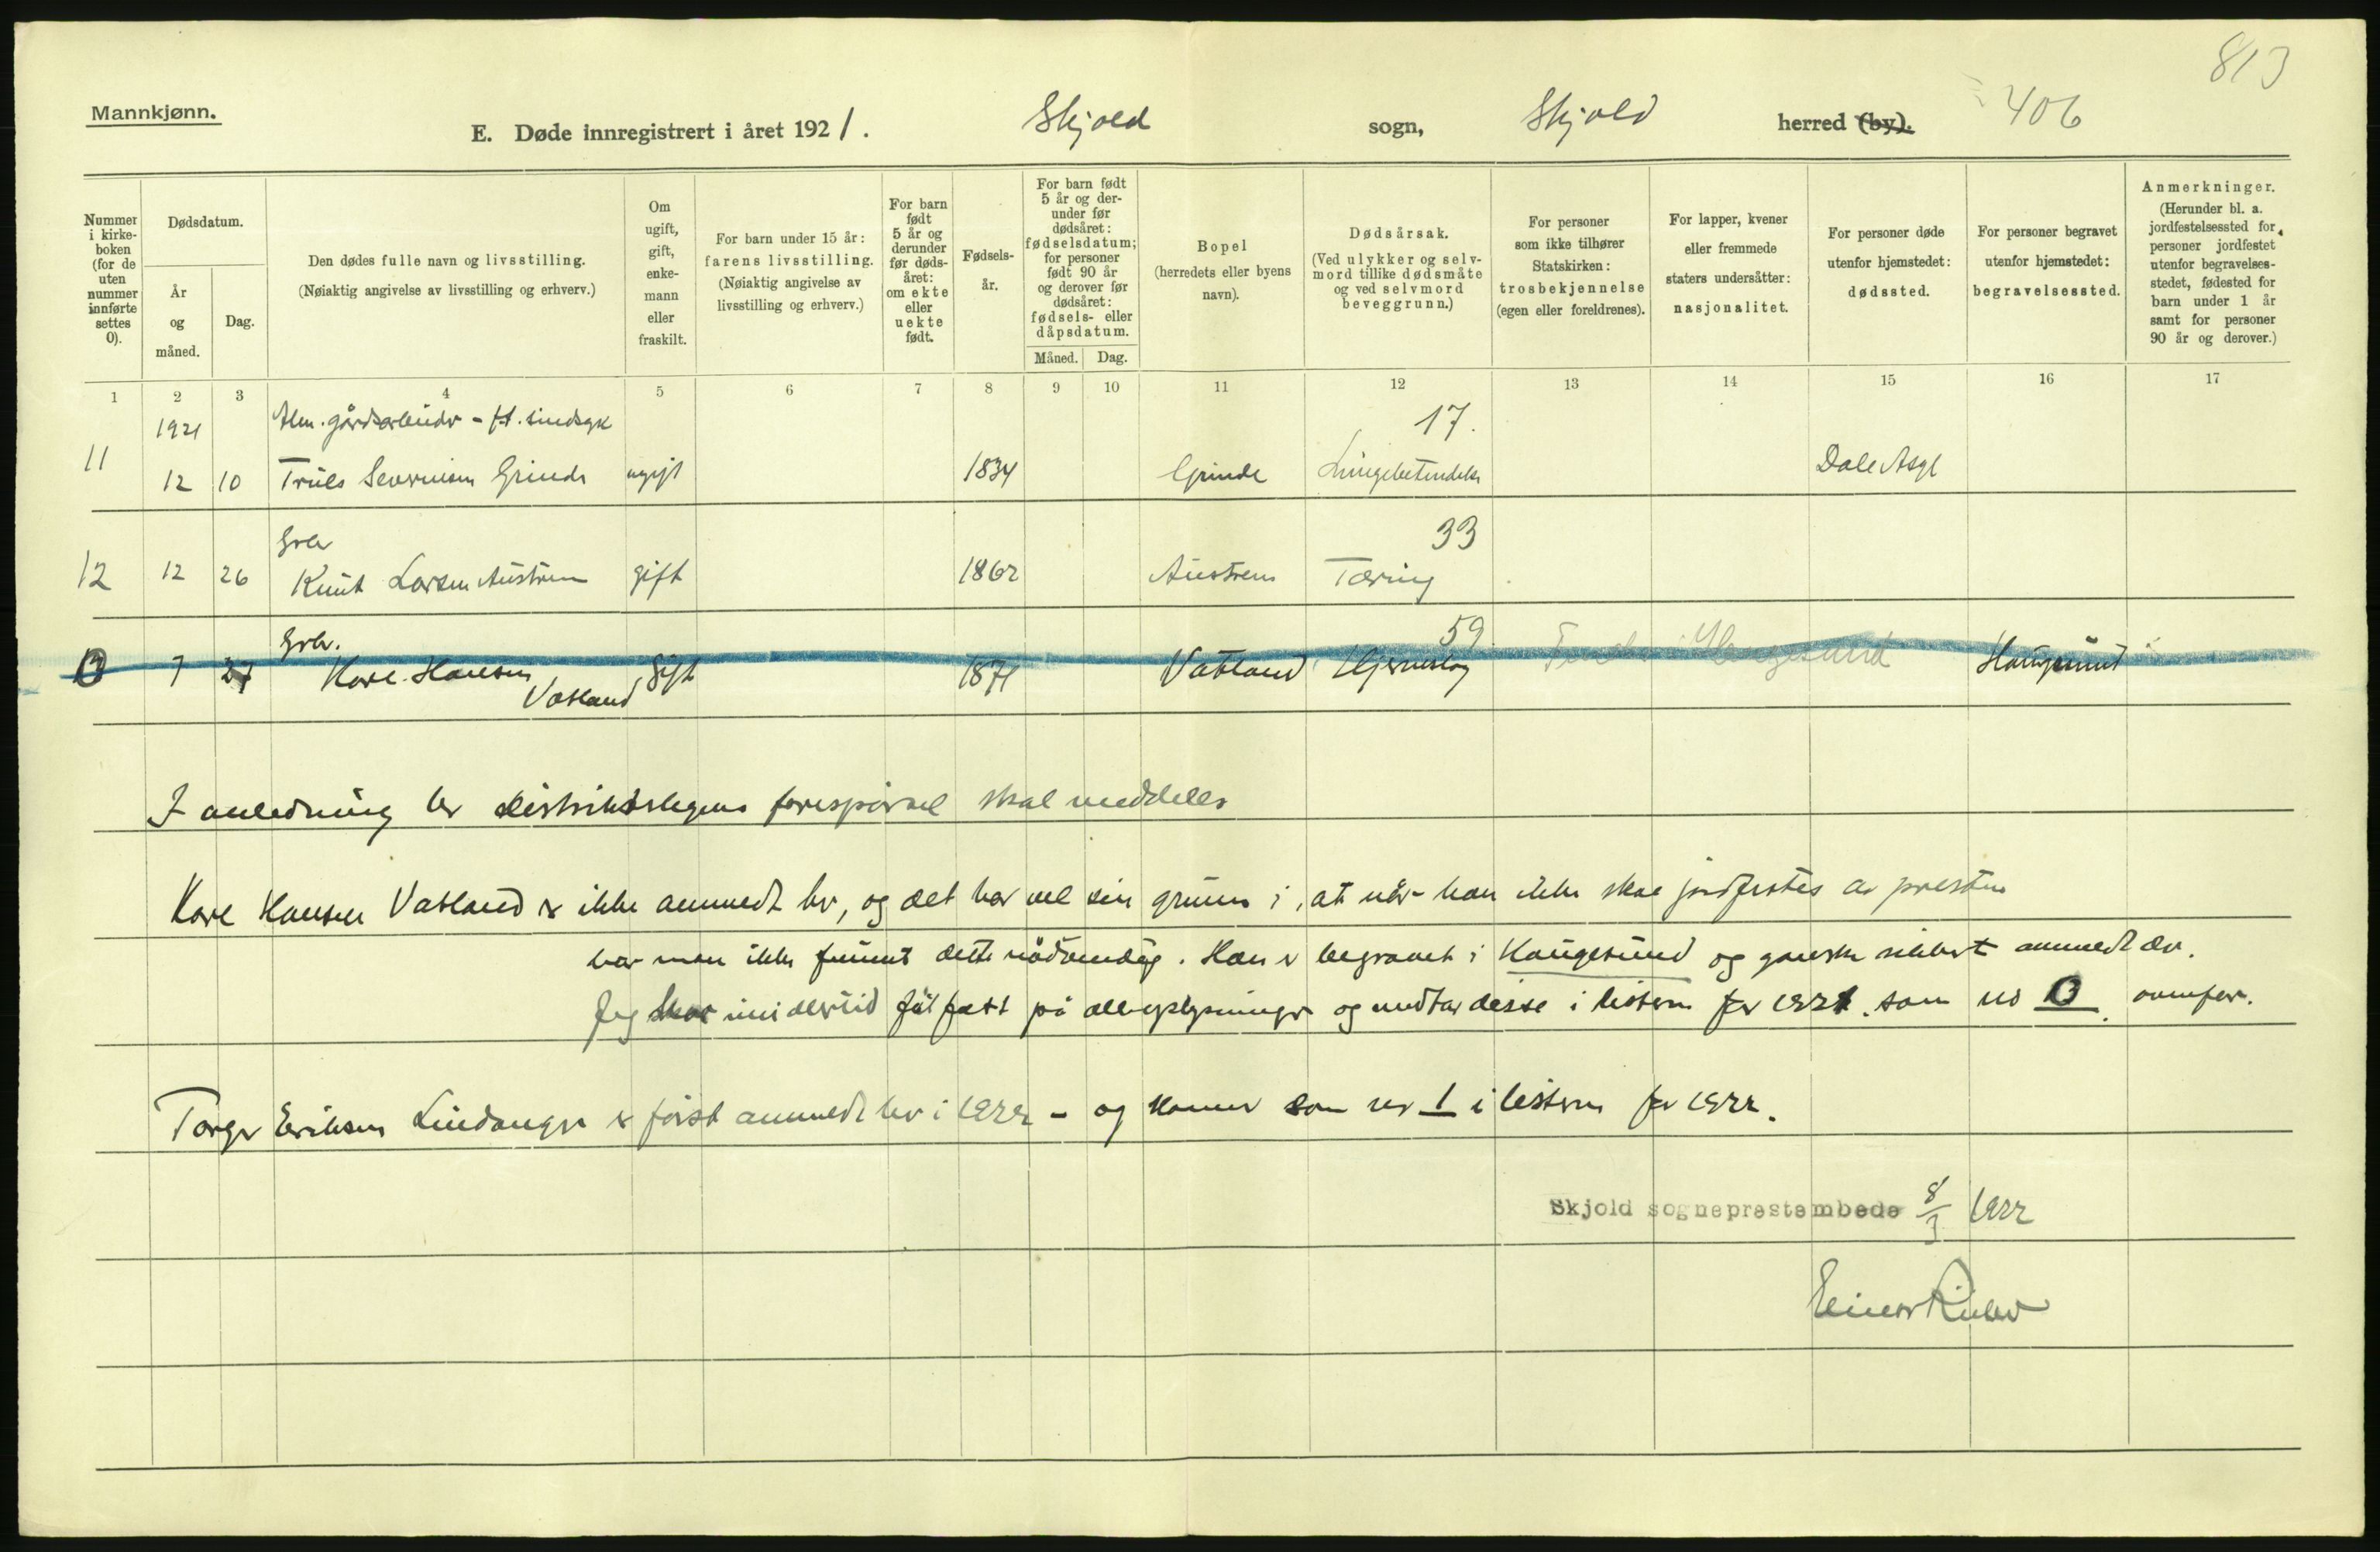 813
Mannkjønn.
E. Døde innregistrert i året 1921. Skjold sogn, Skjold herred (by). 406
Nummer i kirkeboken (for de uten nummer innførte settes 0).
Dødsdatum.
År og måned.
Dag.
Den dødes fulle navn og livsstilling. (Nøiaktig angivelse av livsstilling og erhverv.)
Om ugift, gift, enkemann eller fraskilt.
For barn under 15 år: farens livsstilling. (Nøiaktig angivelse av livsstilling og erhverv.)
For barn født 5 år og derunder før dødsåret: om ekte eller uekte født.
Fødselsår.
For barn født 5 år og derunder før dødsåret: fødselsdatum; for personer født 90 år og derover før dødsåret: fødsels- eller dåpsdatum.
Måned. Dag.
Bopel (herredets eller byens navn).
Dødsårsak. (Ved ulykker og selvmord tillike dødsmåte og ved selvmord beveggrunn.)
For personer som ikke tilhører Statskirken: trosbekjennelse (egen eller foreldrenes).
For lapper, kvener eller fremmede staters undersåtter: nasjonalitet.
For personer døde utenfor hjemstedet: dødssted.
For personer begravet utenfor hjemstedet: begravelsessted.
Anmerkninger. (Herunder bl. a. jordfestelsessted for personer jordfestet utenfor begravelsesstedet, fødested for barn under 1 år samt for personer 90 år og derover.)
1 2 3 4 5 6 7 8 9 10 11 12 13 14 15 16 17
1921 gårdsarbeider - 17.
11 12 10 Truls Severinsen Grinde ugift 1834 Grinde Lungebetendelse Dale Asyl
Grbr 33
12 12 26 Knut Larsen Austrem gift 1862 Austrem Tæring
Grbr. 59
13 7 27 Kare Hansen Vatland gift 1871 Vatland Hjerneslag Haugesund Haugesund
I anledning av distriktslegens forespørsel skal meddeles
Kare Hansen Vatland er ikke anmeldt her, og det har vel sin grunn i, at når han ikke skal jordfestes av presten
har man ikke funnet dette nødvendig. Han er begravet i Haugesund og ganske sikkert anmeldt der.
Jeg har imidlertid fåt fatt på alle oplysninger og medtar disse i listen for 1921 som no 13 ovenfor.
Torger Eriksen Lindanger er først anmeldt her i 1922 - og kommer som no 1 i listen for 1922.
Skjold sogneprestembede 8/3 1922
Einar